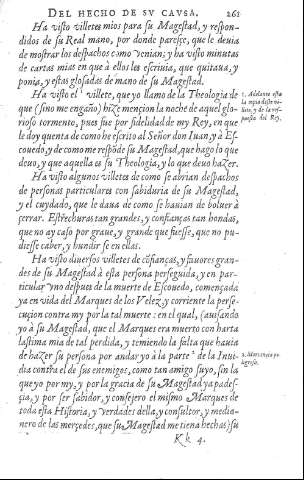 DEL HECHO DE SV CAVSA. 261
Ha visto villetes mios para su Magestad, y respon-
didos de su Real mano, por donde paresçe, que le deuia
de mostrar los despachos como venian; y ha visto minutas
de cartas mias en que à ellos les escriuia, que quitaua, y
ponia, y estas glosadas de mano de su Magestad.
Ha visto el villete, que yo llamo de la Theologia de
que (si no me engaño) hize mençion la noche de aquel glo-
rioso tormento, pues fue por fidelidad de my Rey, en que
le doy quenta de como he escrito al Señor don Iuan, y à Es-
couedo, y de como me respõde su Magestad, que hago lo que
deuo, y que aquella es su Theologia, y lo que deuo hazer.
Ha visto algunos villetes de como se abrian despachos
de personas particulares con sabiduria de su Magestad,
y el cuydado, que le daua de como se hauian de boluer à
çerrar. Estrechuras tan grandes, y confianças tan hondas,
que no ay caso por graue, y grande que fuesse, que no pu-
diesse caber, y hundir se en ellas.
Ha visto diuersos villetes de cõfianças, y fauores gran-
des de su Magestad à esta persona perseguida, y en par-
ticular vno despues de la muerte de Escouedo, començada
ya en vida del Marques de los Velez, y corriente la perse-
cuçion contra my por la tal muerte: en el qual, (auisando
yo à su Magestad, que el Marques era muerto con harta
lastima mia de tal perdida, y temiendo la falta que hauia
de hazer su persona por andar yo à la parte de la Inui-
dia contra el de sus enemigos, como tan amigo suyo, sin la
que yo por my, y por la gracia de su Magestad ya pades-
çia, y por ser sabidor, y consejero el mismo Marques de
toda esta Historia, y verdades della, y consultor, y media-
nero de las merçedes, que su Magestad me tiene hechas) su
Kk 4.
1. Adelante esta
la copia deste vi-
llete, y de la res-
puesta del Rey.
2. Mercançia pe-
ligrosa.